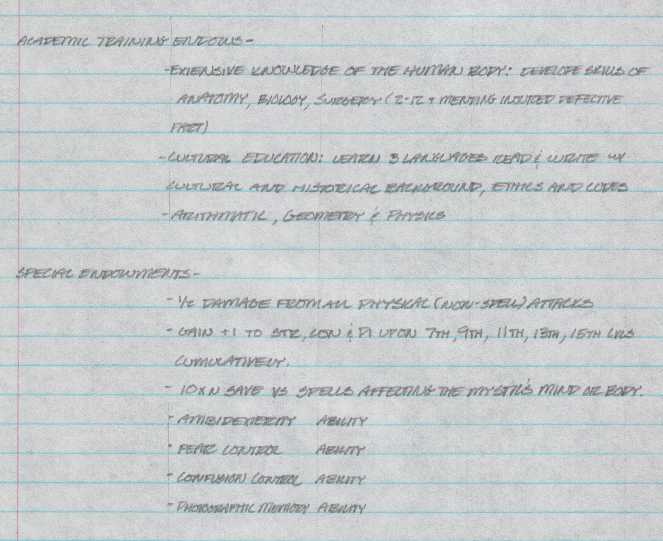 ACADEMIC TRAINING ENDOWS -
- EXTENSIVE KNOWLEDGE OF THE HUMAN BODY: DEVELOPE SKILLS OF
ANATOMY, BIOLOGY, SURGERY (2-12 + MENDING INJURED DEFECTIVE
PART)
- CULTURAL EDUCATION: LEARN 3 LANGUAGES READ & WRITE W/
CULTURAL AND HISTORICAL BACKGROUND, ETHICS AND CODES
- ARITHMATIC, GEOMETRY & PHYSICS
SPECIAL ENDOWMENTS -
- 1/2 DAMAGE FROM ALL PHYSICAL (NON-SPELL) ATTACKS
- GAIN +1 TO STR, CON & UPON 7TH, 9TH, 11TH, 13TH, 15TH LVLS
CUMULATIVELY.
- 10 X N SAVE VS SPELLS AFFECTING THE MYSTIC'S MIND OR BODY.
- AMBIDEXTERITY ABILITY
- FEAR CONTROL ABILITY
- CONFUSION CONTROL ABILITY
- PHOTOGRAPHIC MEMORY ABILITY